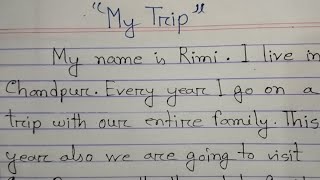 "My Trip"
My name is Rimi. I live in
Chandpur. Every year I go on a
trip with our entire family. This
year also we are going to visit